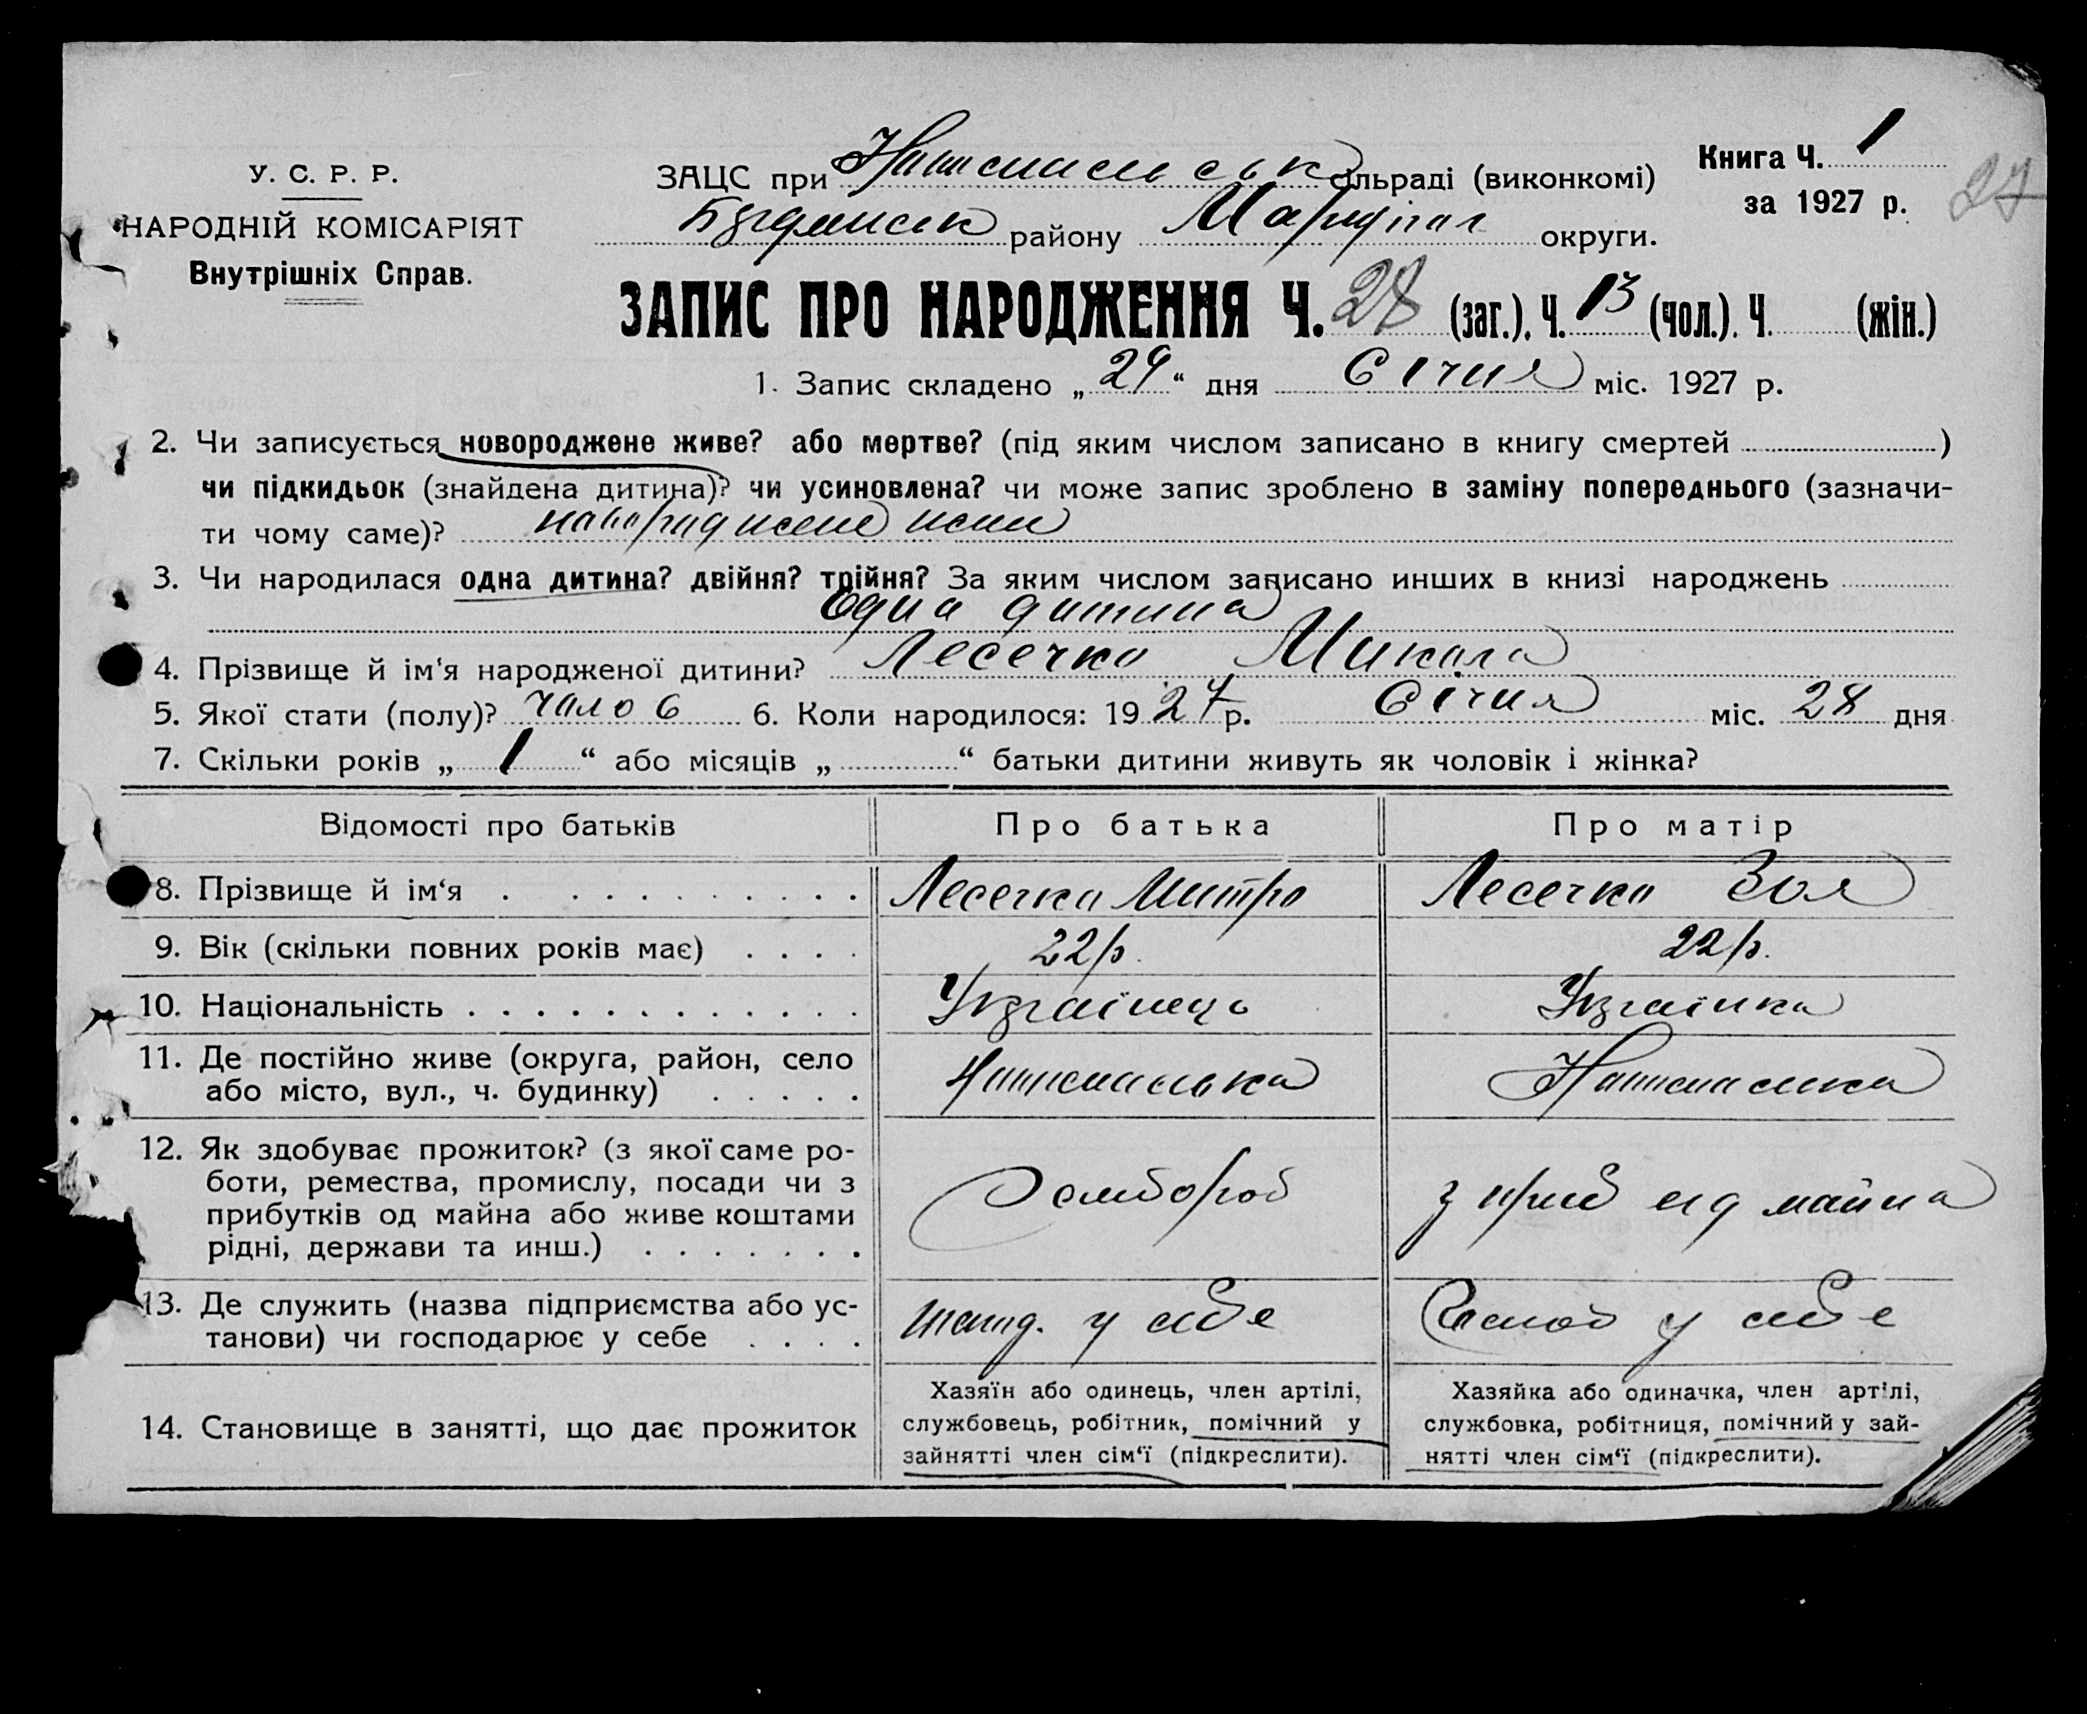 Книга Ч. 1
27
за 1927 р.
У. С. Р. Р.
НАРОДНІЙ КОМІСАРІЯТ
Внутрішніх Справ.
ЗАЦС при сільраді (виконкомі)
району Маріупіл округи.
ЗАПИС ПРО НАРОДЖЕННЯ Ч. 28 (заг.). Ч. 13 (чол.). Ч. (жін.)
1. Запис складено „ 29 “ дня Січня міс. 1927 р.
2. Чи записується новороджене живе? або мертве? (під яким числом записано в книгу смертей )
чи підкидьок (знайдена дитина)? чи усиновлена? чи може запис зроблено в заміну попереднього (зазначи-
ти чому саме)?
3. Чи народилася одна дитина? двійня? трійня? За яким числом записано инших в книзі народжень
Одна дитина
4. Прізвище й ім'я народженої дитини? Лесечко Микола
5. Якої стати (полу)? чолов 6. Коли народилося: 1927 р. Січня міс. 28 дня
7. Скільки років „ 1 “ або місяців „ “ батьки дитини живуть як чоловік і жінка?
Відомості про батьків Про батька Про матір
8. Прізвище й ім'я Лесечко Митро Лесечко Зоя
9. Вік (скільки повних років має) 22 р. 22 р.
10. Національність Українець Українка
11. Де постійно живе (округа, район, село
або місто, вул., ч. будинку)
12. Як здобуває прожиток? (з якої саме ро-
боти, ремества, промислу, посади чи з
прибутків од майна або живе коштами
рідні, держави та инш.)
Хлібороб з приб від майна
13. Де служить (назва підприємства або ус-
танови) чи господарює у себе
у себе у себе
14. Становище в занятті, що дає прожиток
Хазяїн або одинець, член артілі,
службовець, робітник, помічний у
зайнятті член сім'ї (підкреслити).
Хазяйка або одиначка, член артілі,
службовка, робітниця, помічний у зай-
нятті член сім'ї (підкреслити).